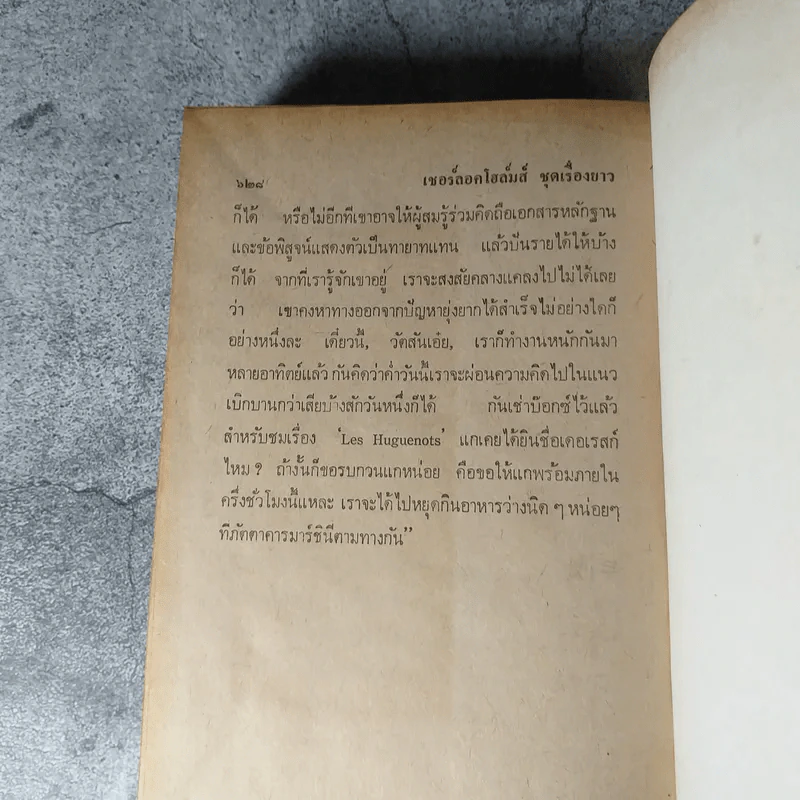 ๖๒๘ เชอร์ลอคโฮล์มส์ ชุดเรื่องยาว
ก็ได้ หรือไม่อีกทีเขาอาจให้ผู้สมรู้ร่วมคิดถือเอกสารหลักฐาน
และข้อพิสูจน์แสดงตัวเป็นทายาทแทน แล้วปันรายได้ให้บ้าง
ก็ได้ จากที่เรารู้จักเขาอยู่ เราจะสงสัยคลางแคลงไปไม่ได้เลย
ว่า เขาคงหาทางออกจากปัญหายุ่งยากได้สำเร็จไม่อย่างใดก็
อย่างหนึ่งละ เดี๋ยวนี้, วัตสันเอ๋ย, เราก็ทำงานหนักกันมา
หลายอาทิตย์แล้ว กันคิดว่าค่ำวันนี้เราจะผ่อนความคิดไปในแนว
เบิกบานกว่าเสียบ้างสักวันหนึ่งก็ได้ กันเช่าบ๊อกซ์ไว้แล้ว
สำหรับชมเรื่อง ‘Les Huguenots’ แกเคยได้ยินชื่อเดอเรสก์
ไหม ? ถ้างั้นก็ขอรบกวนแกหน่อย คือขอให้แกพร้อมภายใน
ครึ่งชั่วโมงนี้แหละ เราจะได้ไปหยุดกินอาหารว่างนิด ๆ หน่อยๆ
ที่ภัตตาคารมาร์ชินีตามทางกัน”